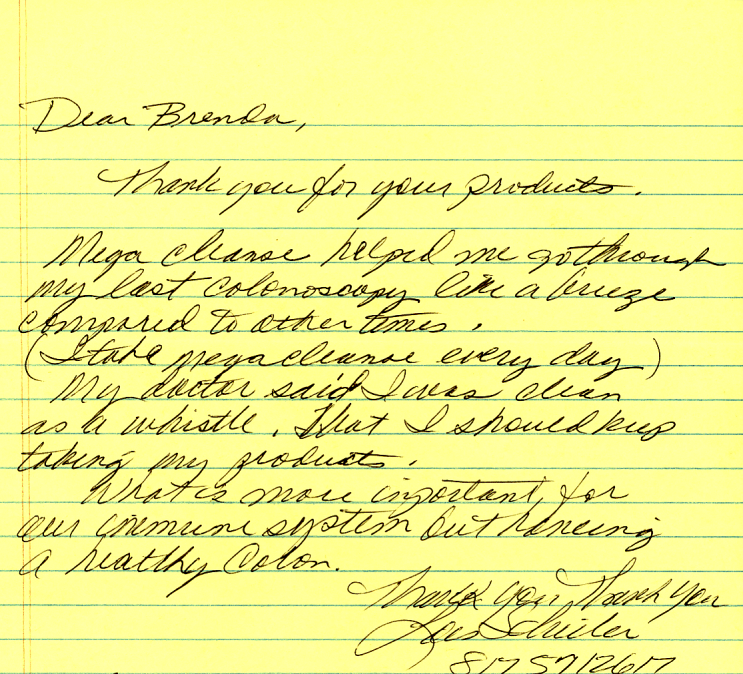 Dear Brenda,
Thank you for your products.
Mega cleanse helped me go through
my last colonoscopy like a breeze
compared to other times.
(I take mega cleanse every day)
My doctor said I was clean
as a whistle. That I should keep
taking my products.
What is more important, for
our immune system but having
a healthy Colon.
Thank you Thank you
Lois
817 571 2617